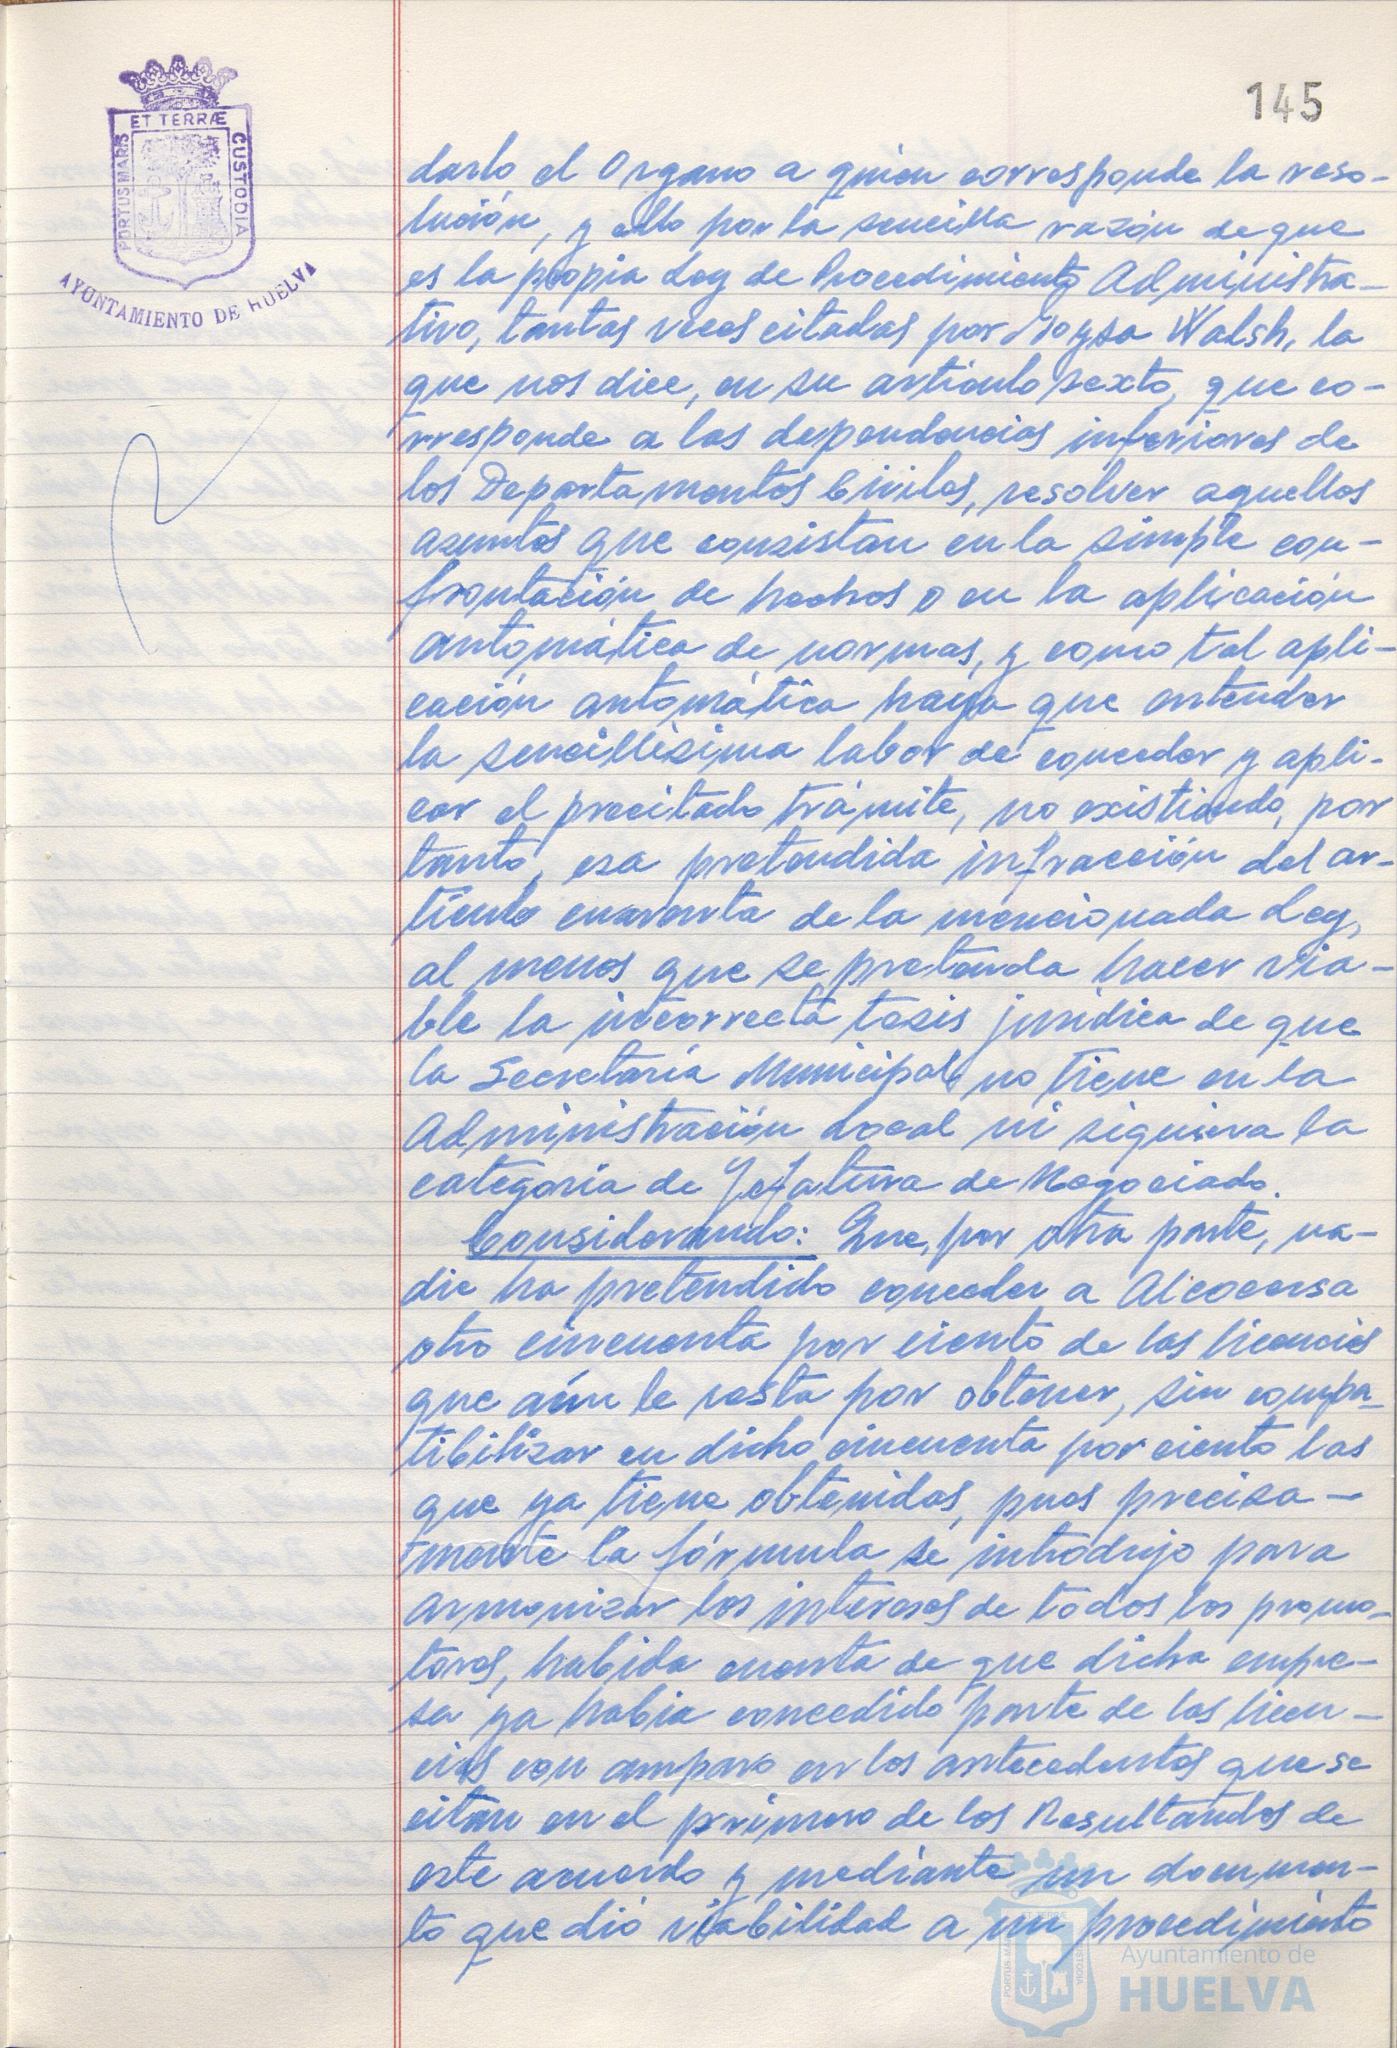 145
ET TERRÆ
PORTUS MARIS
CUSTODIA
AYUNTAMIENTO DE HUELVA
darlo el Organo a quien corresponde la reso-
lución, y ello por la sencilla razón de que
es la propia Ley de Procedimiento Administra-
tivo, tantas veces citadas por Moysa Walsh, la
que nos dice, en su artículo sexto, que co-
rresponde a las dependencias inferiores de
los Departamentos Civiles, resolver aquellos
asuntos que consistan en la simple con-
frontación de hechos o en la aplicación
automática de normas, y como tal apli-
cación automática haya que entender
la sencillísima labor de conceder y apli-
car el precitado trámite, no existiendo, por
tanto, esa pretendida infracción del ar-
tículo cuarenta de la mencionada Ley,
al menos que se pretenda hacer via-
ble la incorrecta tesis jurídica de que
la Secretaría Municipal, no tiene en la
Administración Local ni siquiera la
categoría de Jefatura de Negociado.
Considerando: Que, por otra parte, na-
die ha pretendido conceder a Alcocersa
otro cincuenta por ciento de las licencias
que aún le resta por obtener, sin compa-
tibilizar en dicho cincuenta por ciento las
que ya tiene obtenidas, pues precisa-
mente la fórmula se introdujo para
armonizar los intereses de todos los promo-
tores, habida cuenta de que dicha empre-
sa ya había concedido parte de las licen-
cias con amparo en los antecedentes que se
citan en el primero de los Resultandos de
este acuerdo y mediante un documen-
to que dió viabilidad a un procedimiento
Ayuntamiento de
HUELVA